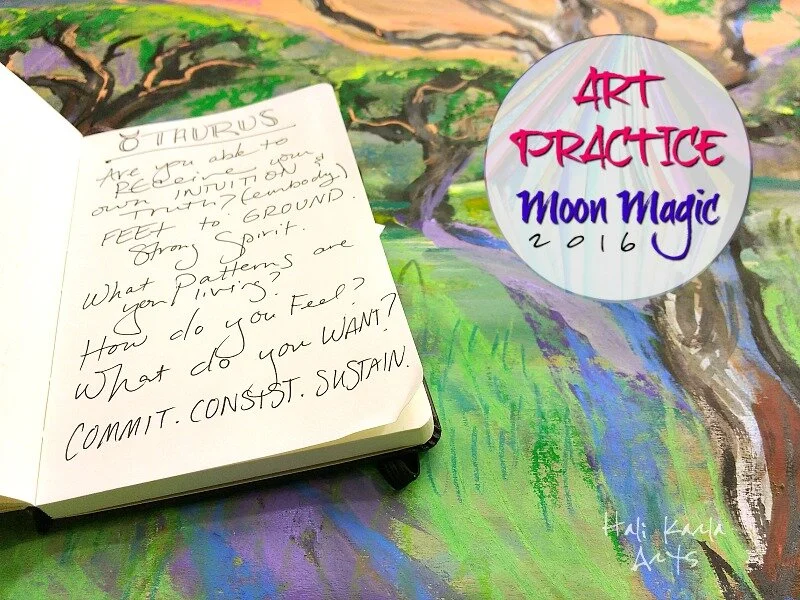 ♉ TAURUS
Are you able to
RECeive your
own INTUITION &
Truth? (embody)
FEET to GROUND.
Strong Spirit.
What Patterns are
you living?
How do you Feel?
What do you WANT?
COMMIT. CONSIST. SUSTAIN.
ART
PRACTICE
Moon Magic
2016
Hali Karla
Arts